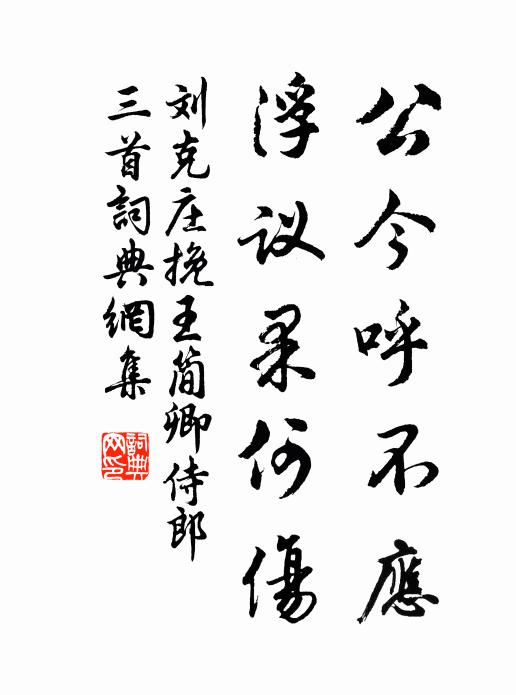 公今呼不應
浮议果何傷
刘克庄挽王简卿侍郎
三首詞典網集
詞典网印